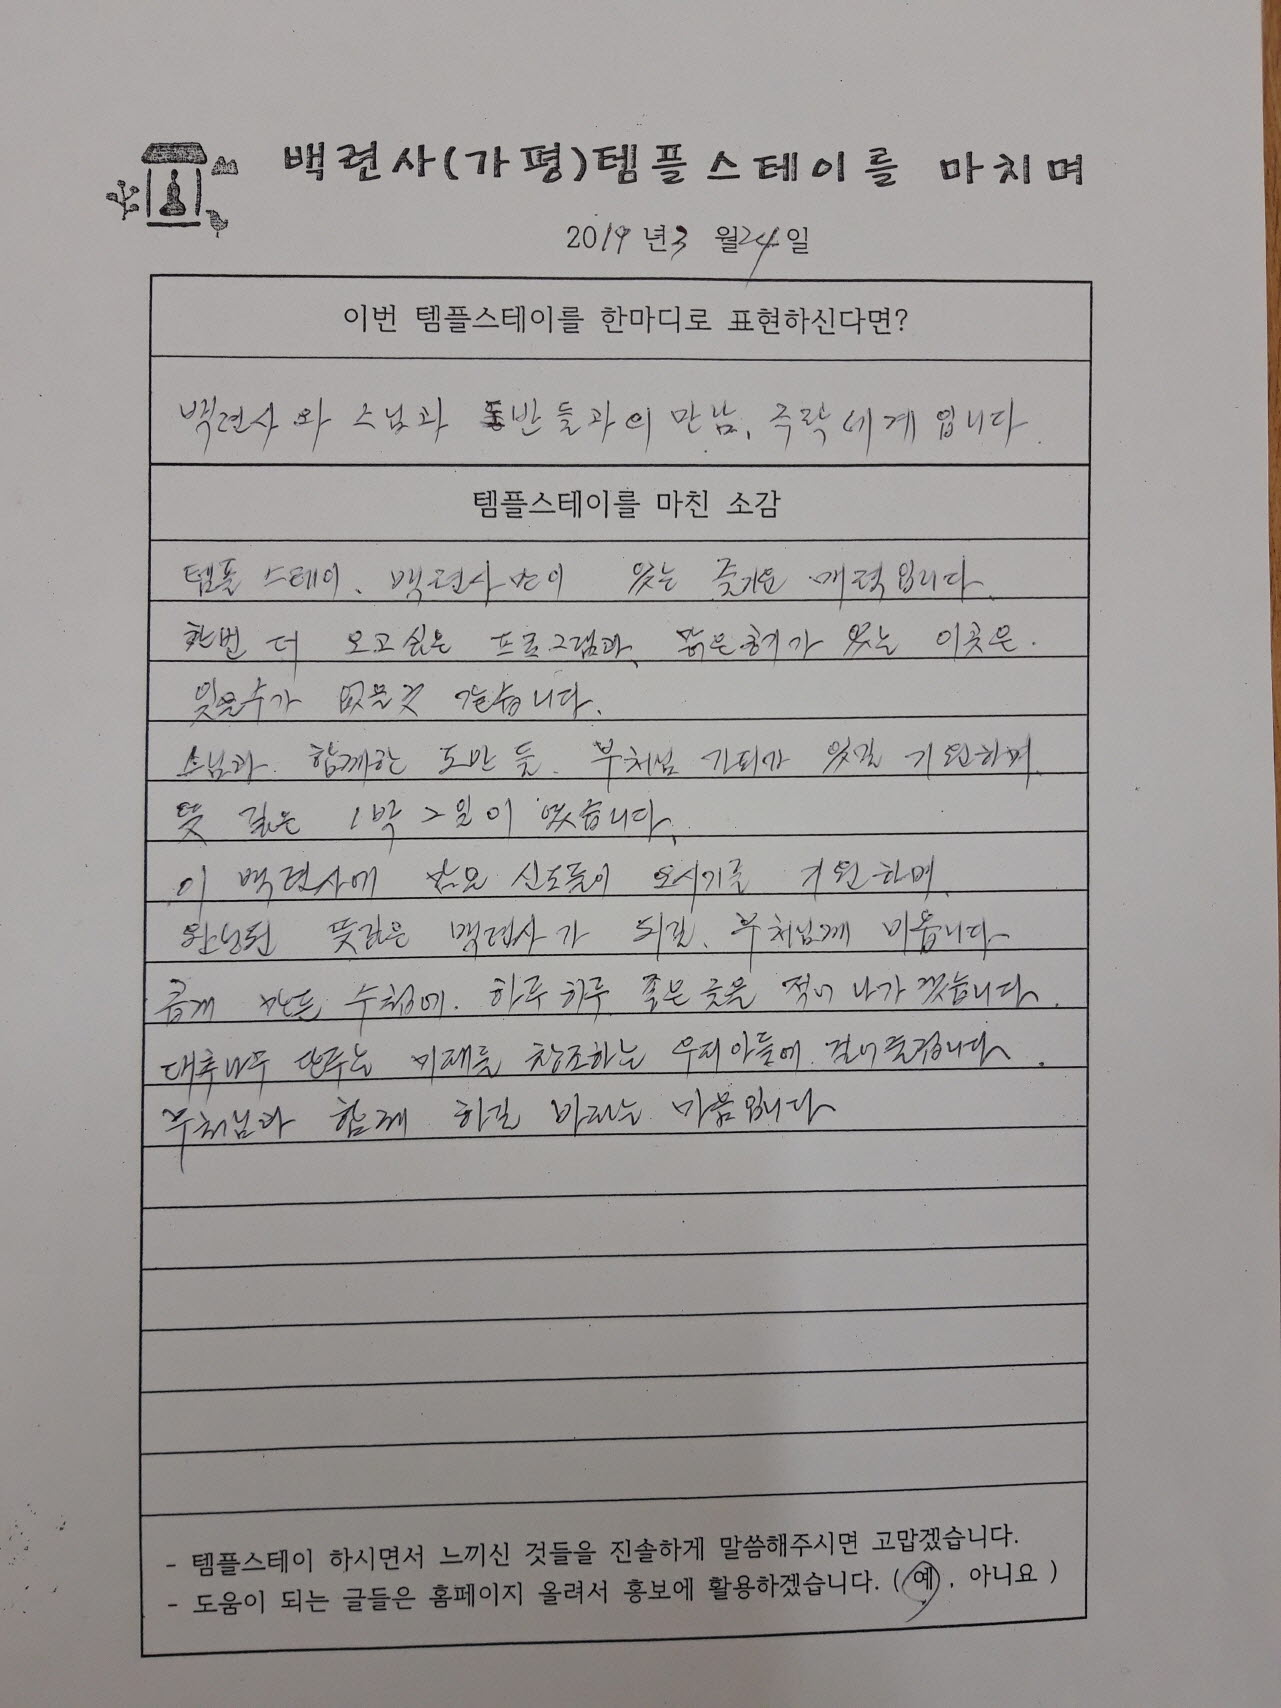 백련사(가평)템플스테이를 마치며
2019년 3월 24일
이번 템플스테이를 한마디로 표현하신다면?
백련사와 스님과 동반들과의 만남, 극락세계입니다.
템플스테이를 마친 소감
템플스테이, 백련사만이 있는 즐거운 매력입니다.
한번 더 오고싶은 프로그램과, 맑은 공기가 있는 이곳은.
잊을수가 없을것 같습니다.
스님과 함께한 도반들, 부처님 가피가 있길 기원하며,
뜻 깊은 1박 2일이 였습니다.
이 백련사에 많은 신도들이 오시기를 기원하며,
완성된 뜻깊은 백련사가 되길, 부처님께 비옵니다
곱게 만든 수첩에. 하루 하루 좋은 글을 적어 나가겠습니다.
대추나무 단주는 미래를 창조하는 우리아들에 걸어줄겁니다.
부처님과 함께 하길 바라는 마음입니다
- 템플스테이 하시면서 느끼신 것들을 진솔하게 말씀해주시면 고맙겠습니다.
- 도움이 되는 글들은 홈페이지 올려서 홍보에 활용하겠습니다. ( 예 , 아니요 )